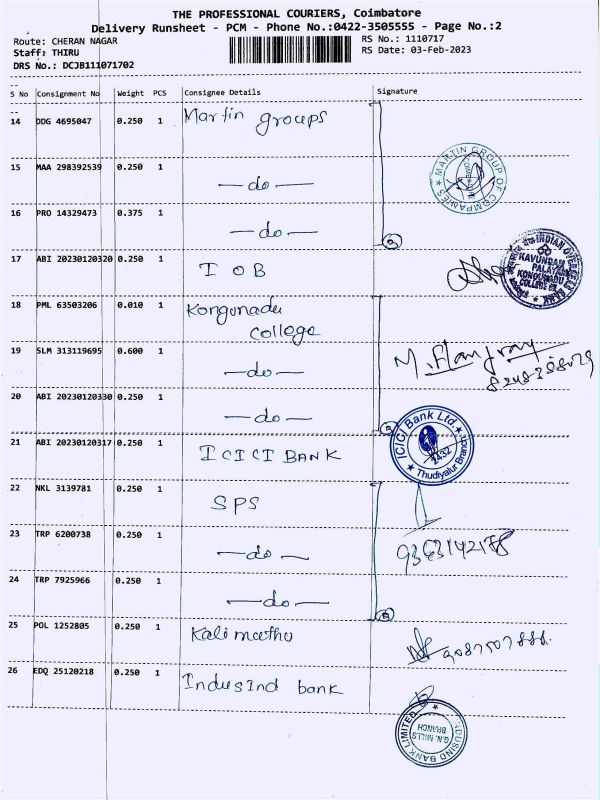 THE PROFESSIONAL COURIERS, Coimbatore
Delivery Runsheet - PCM - Phone No.:0422-3505555 - Page No.:2
Route: CHERAN NAGAR
RS No.: 1110717
Staff: THIRU
RS Date: 03-Feb-2023
DRS No.: DCJB111071702
S No Consignment No Weight PCS Consignee Details Signature
14 DDG 4695047 0.250 1 Martin groups
15 MAA 298392539 0.250 1 —do—
MARTIN GROUP OF COMPANIES
16 PRO 14329473 0.375 1 —do—
17 ABI 20230120320 0.250 1 IOB
INDIAN OVERSEAS BANK
KAVUNDAM
PALAYAM
KONGUNADU
COLLEGE
18 PML 63503206 0.010 1 Kongunadu
college
19 SLM 313119695 0.600 1 —do—
20 ABI 20230120330 0.250 1 —do—
21 ABI 20230120317 0.250 1 ICICI BANK
ICICI Bank Ltd.
2432
Thudiyalur Branch
22 NKL 3139781 0.250 1 SPS
23 TRP 6200738 0.250 1 —do—
24 TRP 7925966 0.250 1 —do—
25 POL 1252805 0.250 1 Kalimuthu
26 EDQ 25120218 0.250 1 IndusInd bank
INDUSIND BANK LIMITED
G.N. MILLS
BRANCH